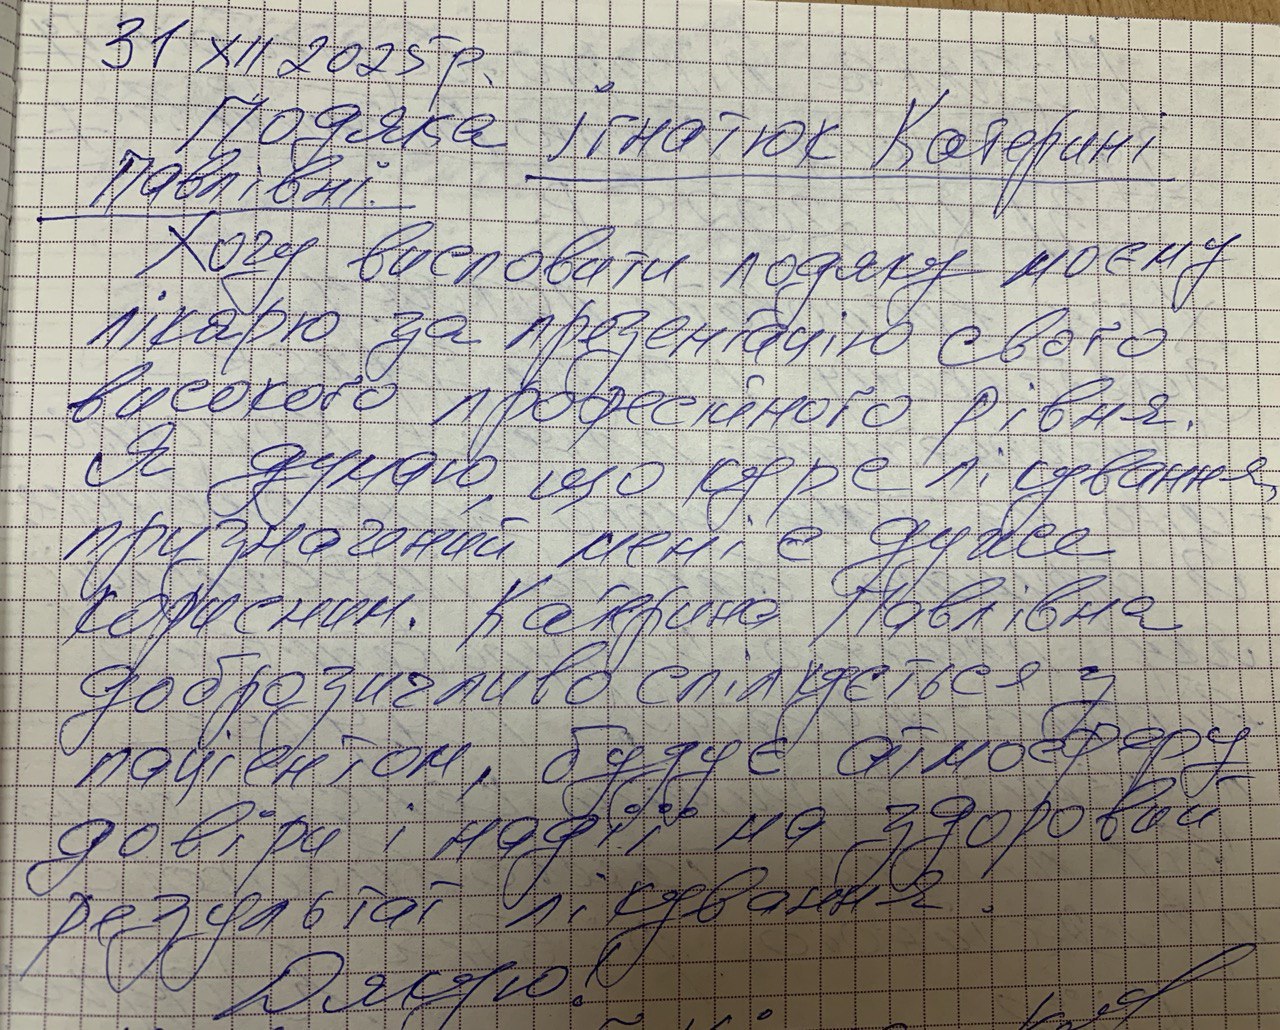 31 XII 2025 р.
Подяка Ігнатюк Катерині
Павлівні.
Хочу висловити подяку моєму
лікарю за презентацію свого
високого професійного рівня.
Я думаю, що курс лікування,
призначений мені є дуже
корисним. Катерина Павлівна
доброзичливо спілкується з
пацієнтом, будує атмосферу
довіри і надії на здоровий
результат лікування.
Дякую!